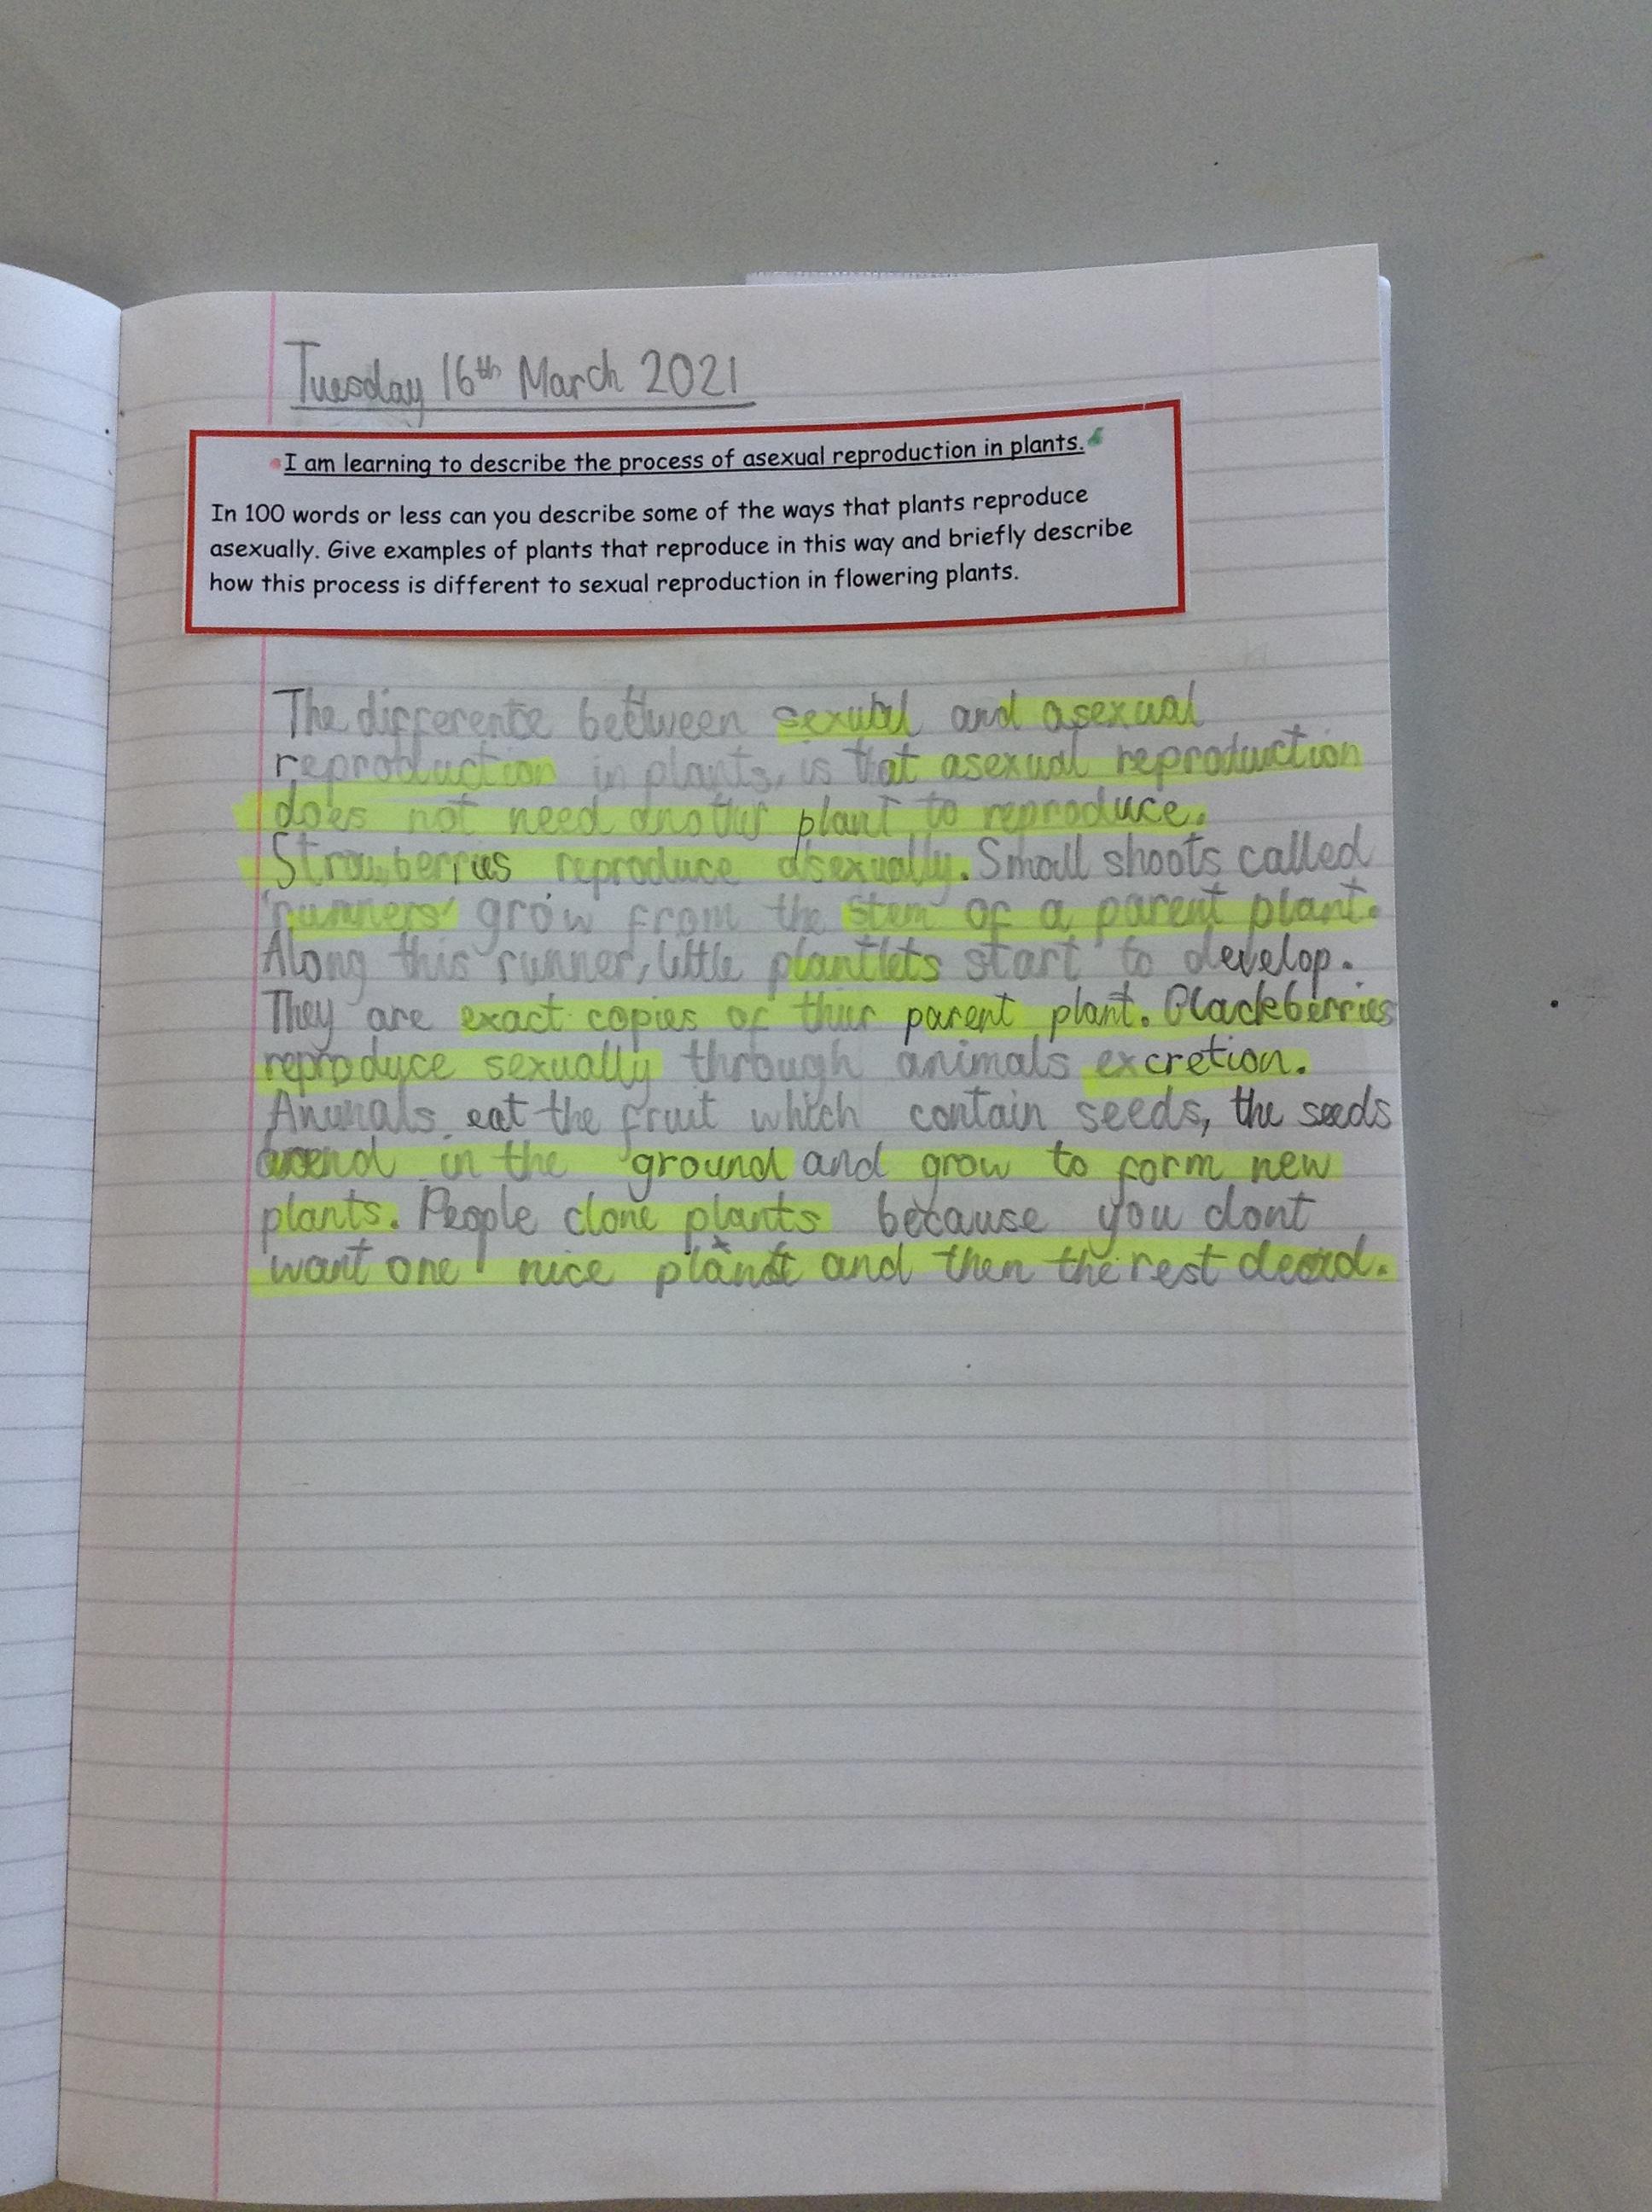 Tuesday 16th March 2021
I am learning to describe the process of asexual reproduction in plants.
In 100 words or less can you describe some of the ways that plants reproduce
asexually. Give examples of plants that reproduce in this way and briefly describe
how this process is different to sexual reproduction in flowering plants.
The difference between sexual and asexual
reproduction in plants, is that asexual reproduction
does not need another plant to reproduce.
Strawberries reproduce asexually. Small shoots called
'runners' grow from the stem of a parent plant.
Along this runner, little plantlets start to develop.
They are exact copies of thier parent plant. Blackberries
reproduce sexually through animals excretion.
Animals eat the fruit which contain seeds, the seeds
end in the ground and grow to form new
plants. People clone plants because you dont
want one nice plant and then the rest dead.